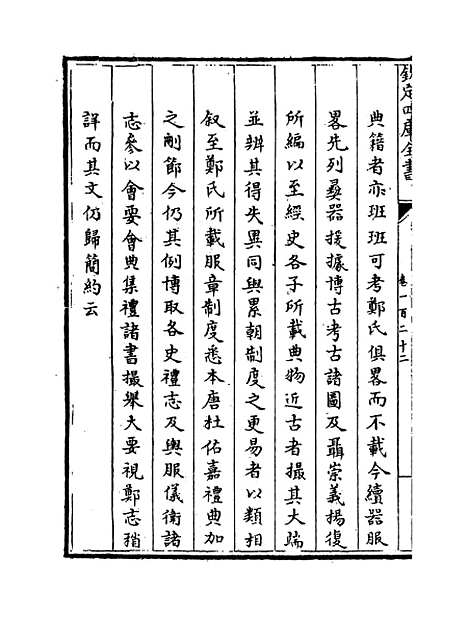 欽定四庫全書
卷一百二十二
典籍者亦班班可考鄭氏俱畧而不載今續器服
畧先列彞器援據博古考古諸圖及聶崇義楊復
所編以至經史各子所載典物近古者撮其大端
並辨其得失異同與累朝制度之更易者以類相
叙至鄭氏所載服章制度悉本唐杜佑嘉禮典加
之刪節今仍其例博取各史禮志及輿服儀衛諸
志參以會要會典集禮諸書撮舉大要視鄭志稍
詳而其文仍歸簡約云